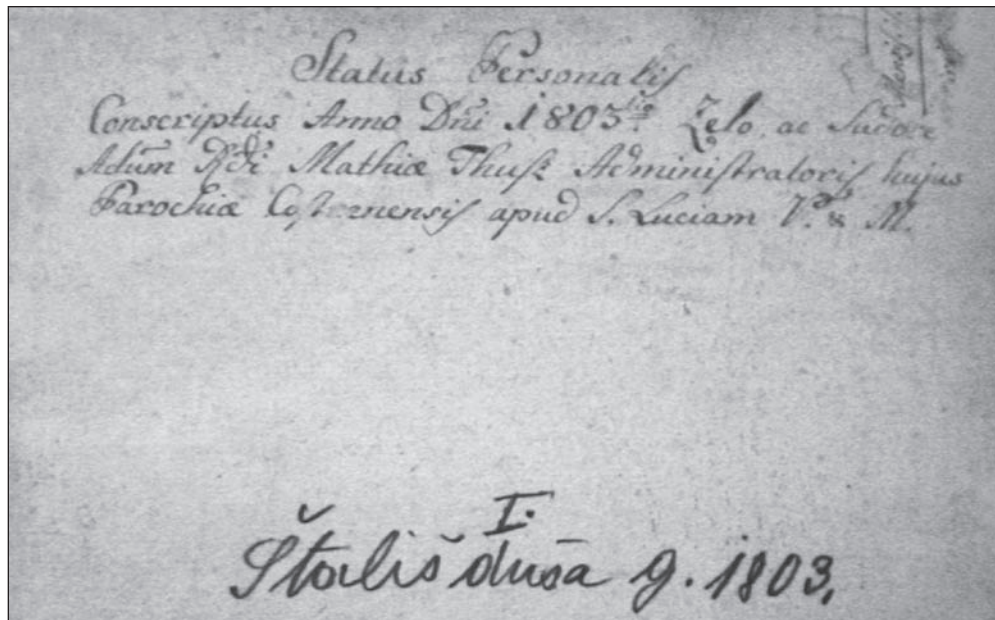 Status Personalis
Conscriptus Anno Dñi 1803tio. Zelo ac Sudore
Adum Rđi Mathiæ Thusk Administratoris hujus
Parochiæ apud S. Luciam V. & M.
I.
Štališ duša g. 1803.